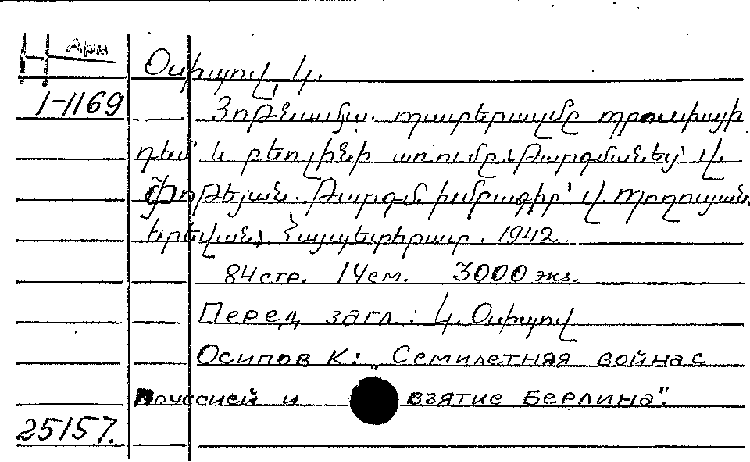 Արմ
Օսիպով, Կ.
1-1169 Յոթնամյա պատերազմը պրուսիայի
դեմ և բեռլինի առումը: Թարգմանեց՝ Վ.
Փոթեյան. Թարգմ. խմբագիր՝ Վ. Պողոսյան.
Երևան, Հայպետհրատ. 1942.
84 стр. 14 см. 3000 экз.
Перед загл.: Կ. Օսիպով
Осипов К: „Семилетняя война с
Пруссией и взятие Берлина".
25157.